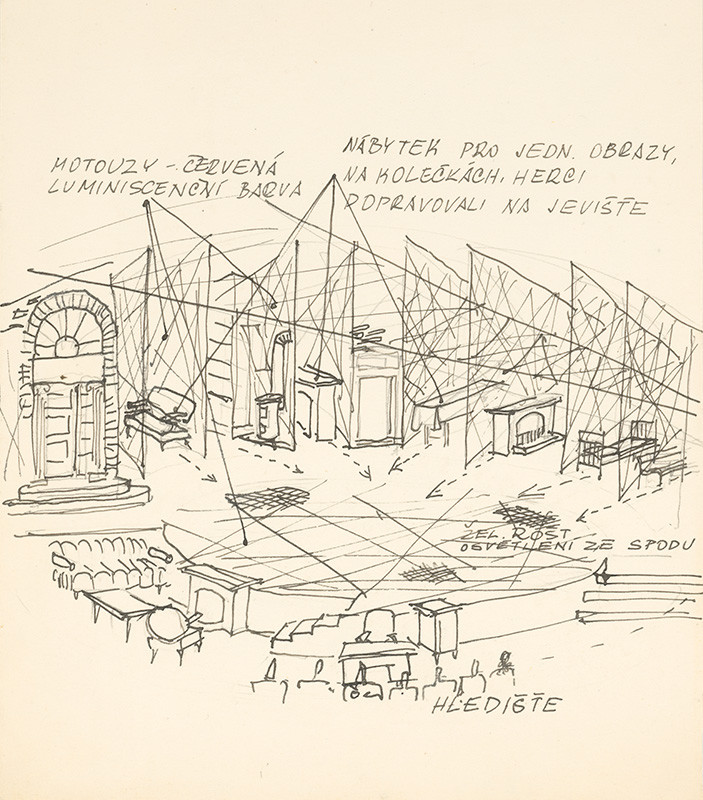 MOTOUZY - ČERVENÁ
LUMINISCENČNÍ BARVA
NÁBYTEK PRO JEDN. OBRAZY,
NA KOLEČKÁCH, HERCI
DOPRAVOVALI NA JEVIŠTE
ŽEL. ROŠT
OSVĚTLENÍ ZE SPODU
HLEDIŠTE